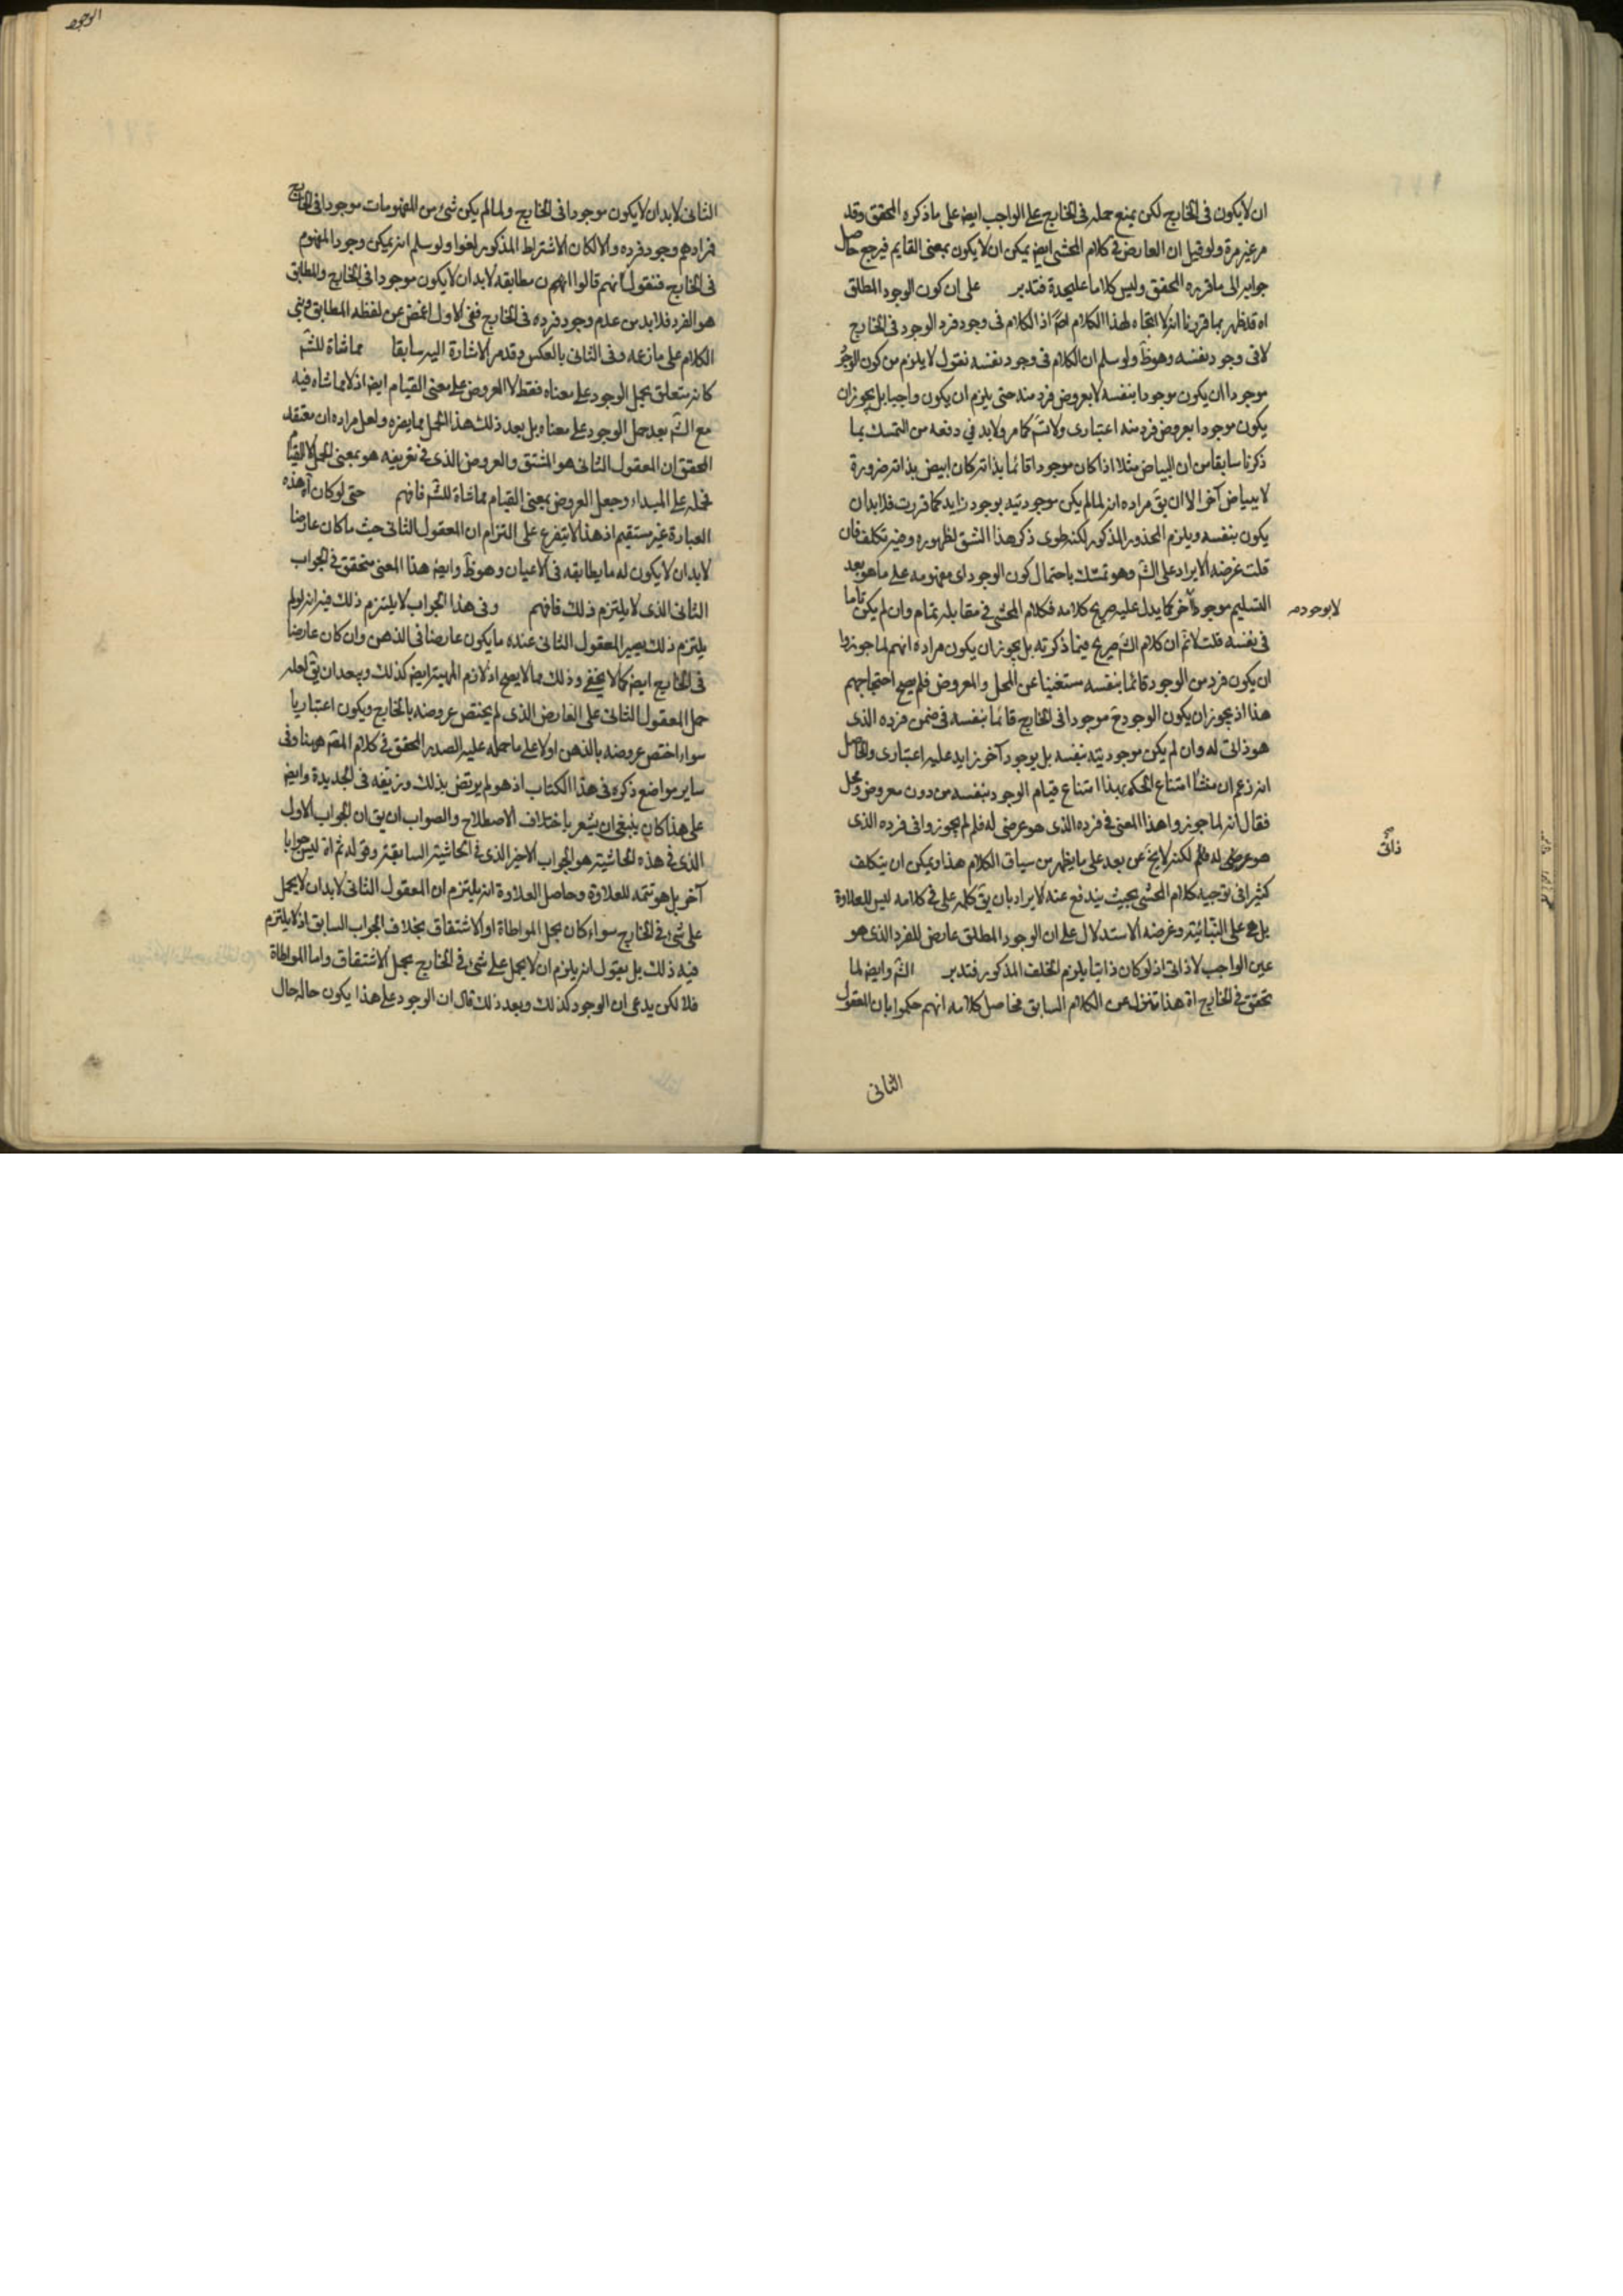 ان لا يكون فى الخارج لكن يمنع حمله فى الخارج على الواجب ايض على ما ذكره المحقق وقد
مر غير مرة ولو قيل ان العارض فى كلام المحشى ايض يمكن ان لا يكون بمعنى القايم فيرجع حاصل
جوابه الى ما قرره المحقق وليس كلاما عليحدة فتدبر على ان كون الوجود المطلق
اه قد ظهر بما قررنا انه لا اتجاه لهذا الكلام اصلا اذ الكلام فى وجود فرد الوجود فى الخارج
لا فى وجود نفسه وهو ظ ولو سلم ان الكلام فى وجود نفسه نقول لا يلزم من كون الوجود
موجودا ان يكون موجودا بنفسه لا بعروض فرد منه حتى يلزم ان يكون واجبا بل يجوز ان
يكون موجودا بعروض فرد منه اعتبارى ولا تم كما مر ولابد فى دفعه من التمسك بما
ذكرنا سابقا من ان البياض مثلا اذا كان موجودا قائما بذاته كان ابيض بذاته ضرورة
لا ببياض آخر الا ان يق مراده انه لما لم يكن موجوديته بوجود زايد كما قررت فلابد ان
يكون بنفسه ويلزم المحذور المذكور لكنه طوى ذكر هذا الشق لظهوره وفيه تكلف فان
قلت غرضه الايراد على الش وهو تمسك باحتمال كون الوجود اى مفهومه على ما هو بعد
التسليم موجودا آخر كما يدل عليه صريح كلامه فكلام المحشى فى مقابله تمام وان لم يكن تاما
لا بوجود صه
فى نفسه قلت لا نم ان كلام الش صريح فيما ذكرته بل يجوز ان يكون مراده انهم لما جوزوا
ان يكون فرد من الوجود قائما بنفسه مستغنيا عن المحل والمعروض فلم يصح احتجاجهم
هذا اذ يجوز ان يكون الوجود ح موجودا فى الخارج قائما بنفسه فى ضمن فرده الذى
هو ذاتى له وان لم يكن موجوديته بنفسه بل بوجود آخر زايد عليه اعتبارى والحاصل
انه زعم ان منشا امتناع الحكم بهذا امتناع قيام الوجود بنفسه من دون معروض ومحل
فقال انه لما جوزوا هذا المعنى فى فرده الذى هو عرضى له فلم لم يجوزوا فى فرده الذى
هو عرضى له فلم لكنه لا يخ عن بعد على ما يظهر من سياق الكلام هذا ويمكن ان يتكلف
ذاتى
كثيرا فى توجيه كلام المحشى بحيث يندفع عنه الايراد بان يق كلمه على فى كلامه ليس للعلاوة
بل هى على البنائية وغرضه الاستدلال على ان الوجود المطلق عارض للفرد الذى هو
عين الواجب لا ذاتى اذ لو كان ذاتيا يلزم الخلف المذكور فتدبر الش وايض لما
تحقق فى الخارج اه هذا تنزل عن الكلام السابق فحاصل كلامه انهم حكموا بان المعقول
الثانى
الثانى لابد ان لا يكون موجودا فى الخارج ولما لم يكن شىء من المفهومات موجودا فى الخارج
فمرادهم وجود فرده والا لكان الاشتراط المذكور لغوا ولو سلم انه يمكن وجود المفهوم
فى الخارج فنقول انهم قالوا انهم ان مطابقه لابد ان لا يكون موجودا فى الخارج والمطابق
هو الفرد فلابد من عدم وجود فرده فى الخارج ففى الاول اغمض عن لفظه المطابق وبنى
الكلام على ما زعمه وفى الثانى بالعكس وقد مر الاشارة اليه سابقا مماشاة للش
كانه متعلق بحمل الوجود على معناه فقط لا العروض على معنى القيام ايض اذ لا مماشاه فيه
مع الش بعد حمل الوجود على معناه بل بعد ذلك هذا الحمل مما يضره ولعل مراده ان معتقد
المحقق ان المعقول الثانى هو المشتق والعروض الذى فى تعريفه هو بمعنى الحمل لا القيام
فحمله على المبداء وجعل العروض بمعنى القيام مماشاة للش فافهم حتى لو كان آه هذه
العبارة غير مستقيم اذ هذا لا يتفرع على التزام ان المعقول الثانى حيث ما كان عارضا
لابد ان لا يكون له ما يطابقه فى الاعيان وهو ظ وايض هذا المعنى متحقق فى الجواب
الثانى الذى لا يلتزم ذلك فافهم وفى هذا الجواب لا يلتزم ذلك فيه انه لو لم
يلتزم ذلك يصير المعقول الثانى عنده ما يكون عارضا فى الذهن وان كان عارضا
فى الخارج ايض كما لا يخفى وذلك مما لا يصح اذ لازم المهية ايض كذلك ويبعد ان يق لعله
حمل المعقول الثانى على العارض الذى لم يختص عروضه بالخارج ويكون اعتباريا
سواء اختص عروضه بالذهن اولا على ما حمله عليه الصدر المحقق فى كلام المقم هيهنا وفى
ساير مواضع ذكره فى هذا الكتاب اذ هو لم يرتض بذلك وزيفه فى الجديدة وايض
على هذا كان ينبغى ان يشعر باختلاف الاصطلاح والصواب ان يق ان الجواب الاول
الذى فى هذه الحاشيه هو الجواب الاخير الذى فى الحاشية السابقة وقوله ثم اه ليس جوابا
آخر بل هو تتمه للعلاوة وحاصل العلاوة انه يلتزم ان المعقول الثانى لابد ان لا يحمل
على شىء فى الخارج سواء كان بحمل المواطاة او الاشتقاق بخلاف الجواب السابق اذ لا يلتزم
فيه ذلك بل يقول انه يلزم ان لا يحمل على شىء فى الخارج بحمل الاشتقاق واما المواطاة
فلا لكن يدعى ان الوجود كذلك وبعد ذلك قال ان الوجود على هذا يكون حاله حال
الوجود